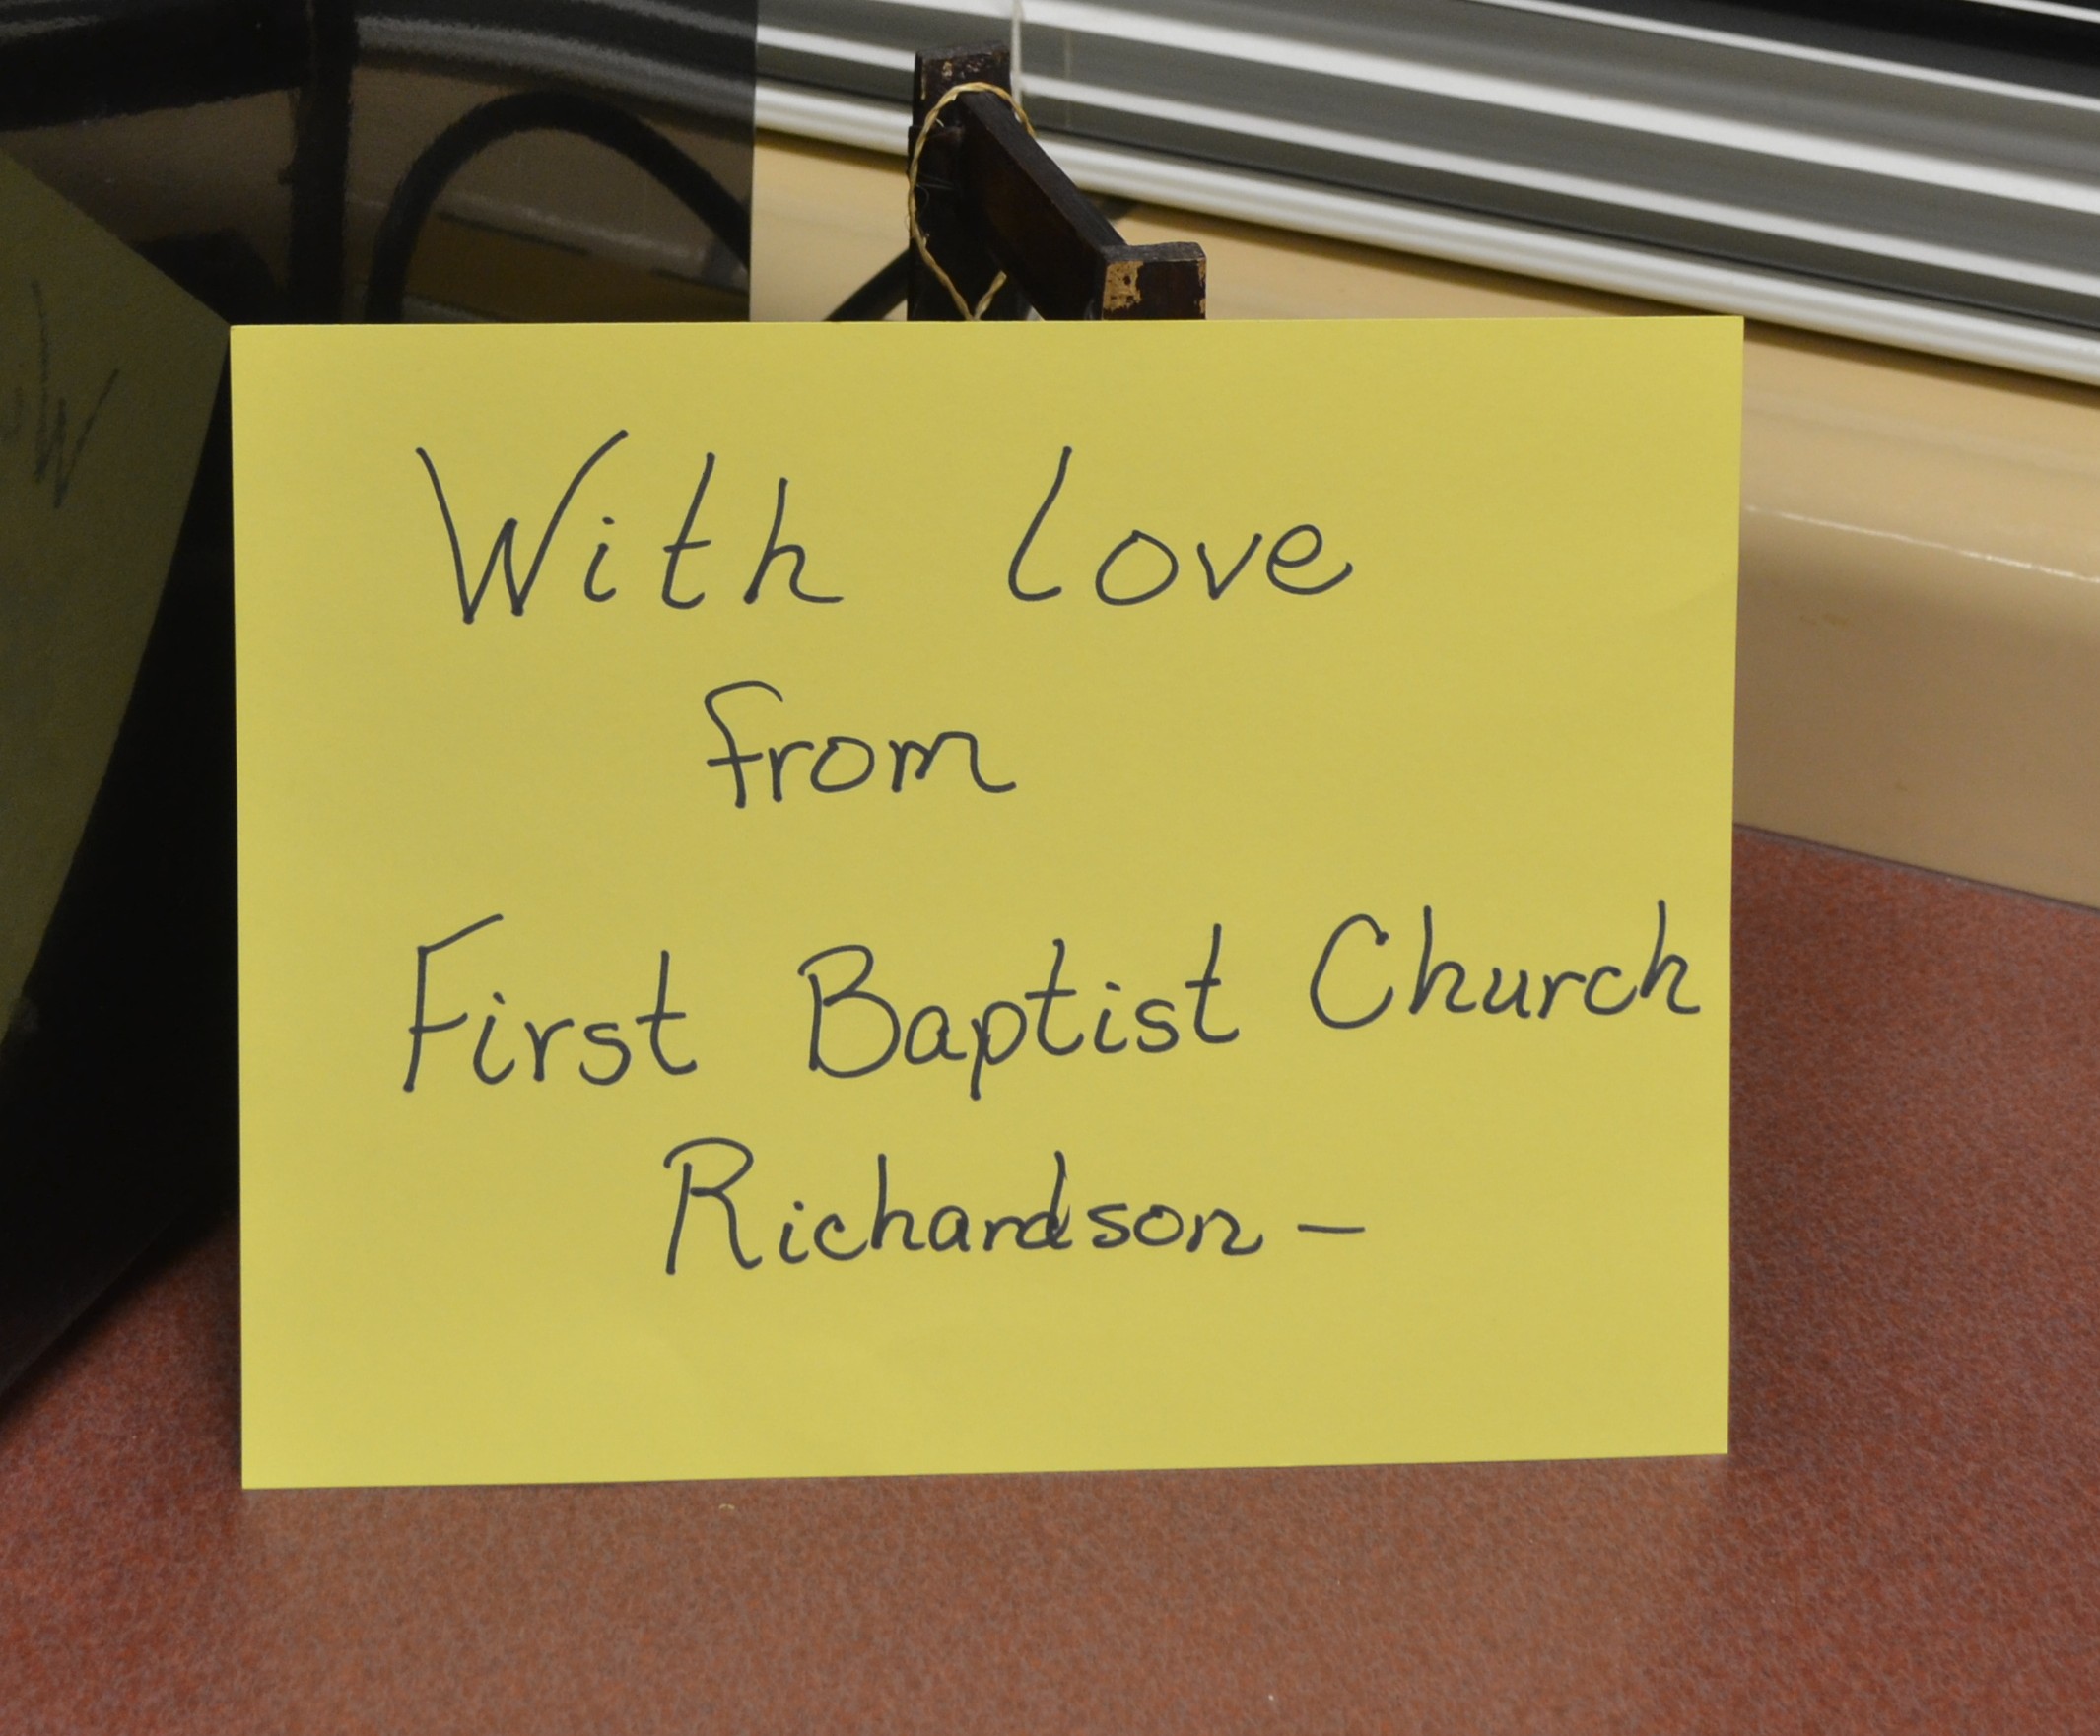 With love
from
First Baptist Church
Richardson –